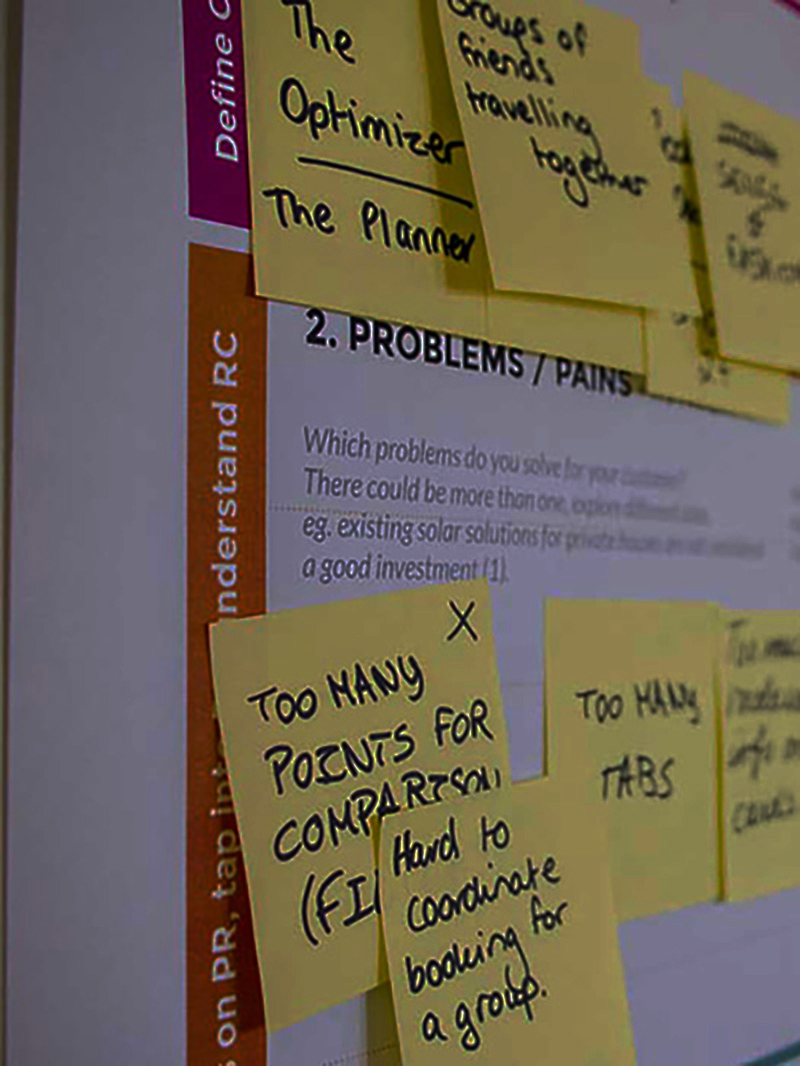 Define C
The
Optimizer
The Planner
Groups of
friends
travelling
together
2. PROBLEMS / PAINS
Which problems do you solve for your customer?
There could be more than one, explore different
eg. existing solar solutions for private houses are not
a good investment (1).
nderstand RC
on PR, tap
X
TOO MANY
POINTS FOR
COMPARISON
Hard to
coordinate
booking for
a group.
TOO MANY
TABS
Too much
info